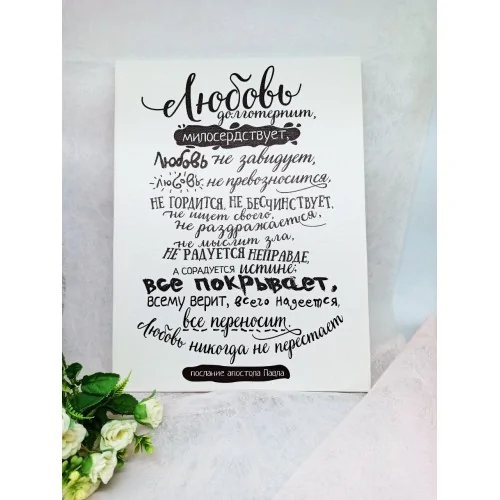 Любовь
долготерпит,
милосердствует,
Любовь не завидует,
Любовь не превозносится,
НЕ ГОРДИТСЯ, НЕ БЕСЧИНСТВУЕТ,
не ищет своего,
не раздражается,
не мыслит зла,
НЕ РАДУЕТСЯ НЕПРАВДЕ,
А СОРАДУЕТСЯ ИСТИНЕ;
ВСЕ ПОКРЫВАЕТ,
ВСЕМУ ВЕРИТ, всего надеется,
все переносит.
Любовь никогда не перестает
послание апостола Павла